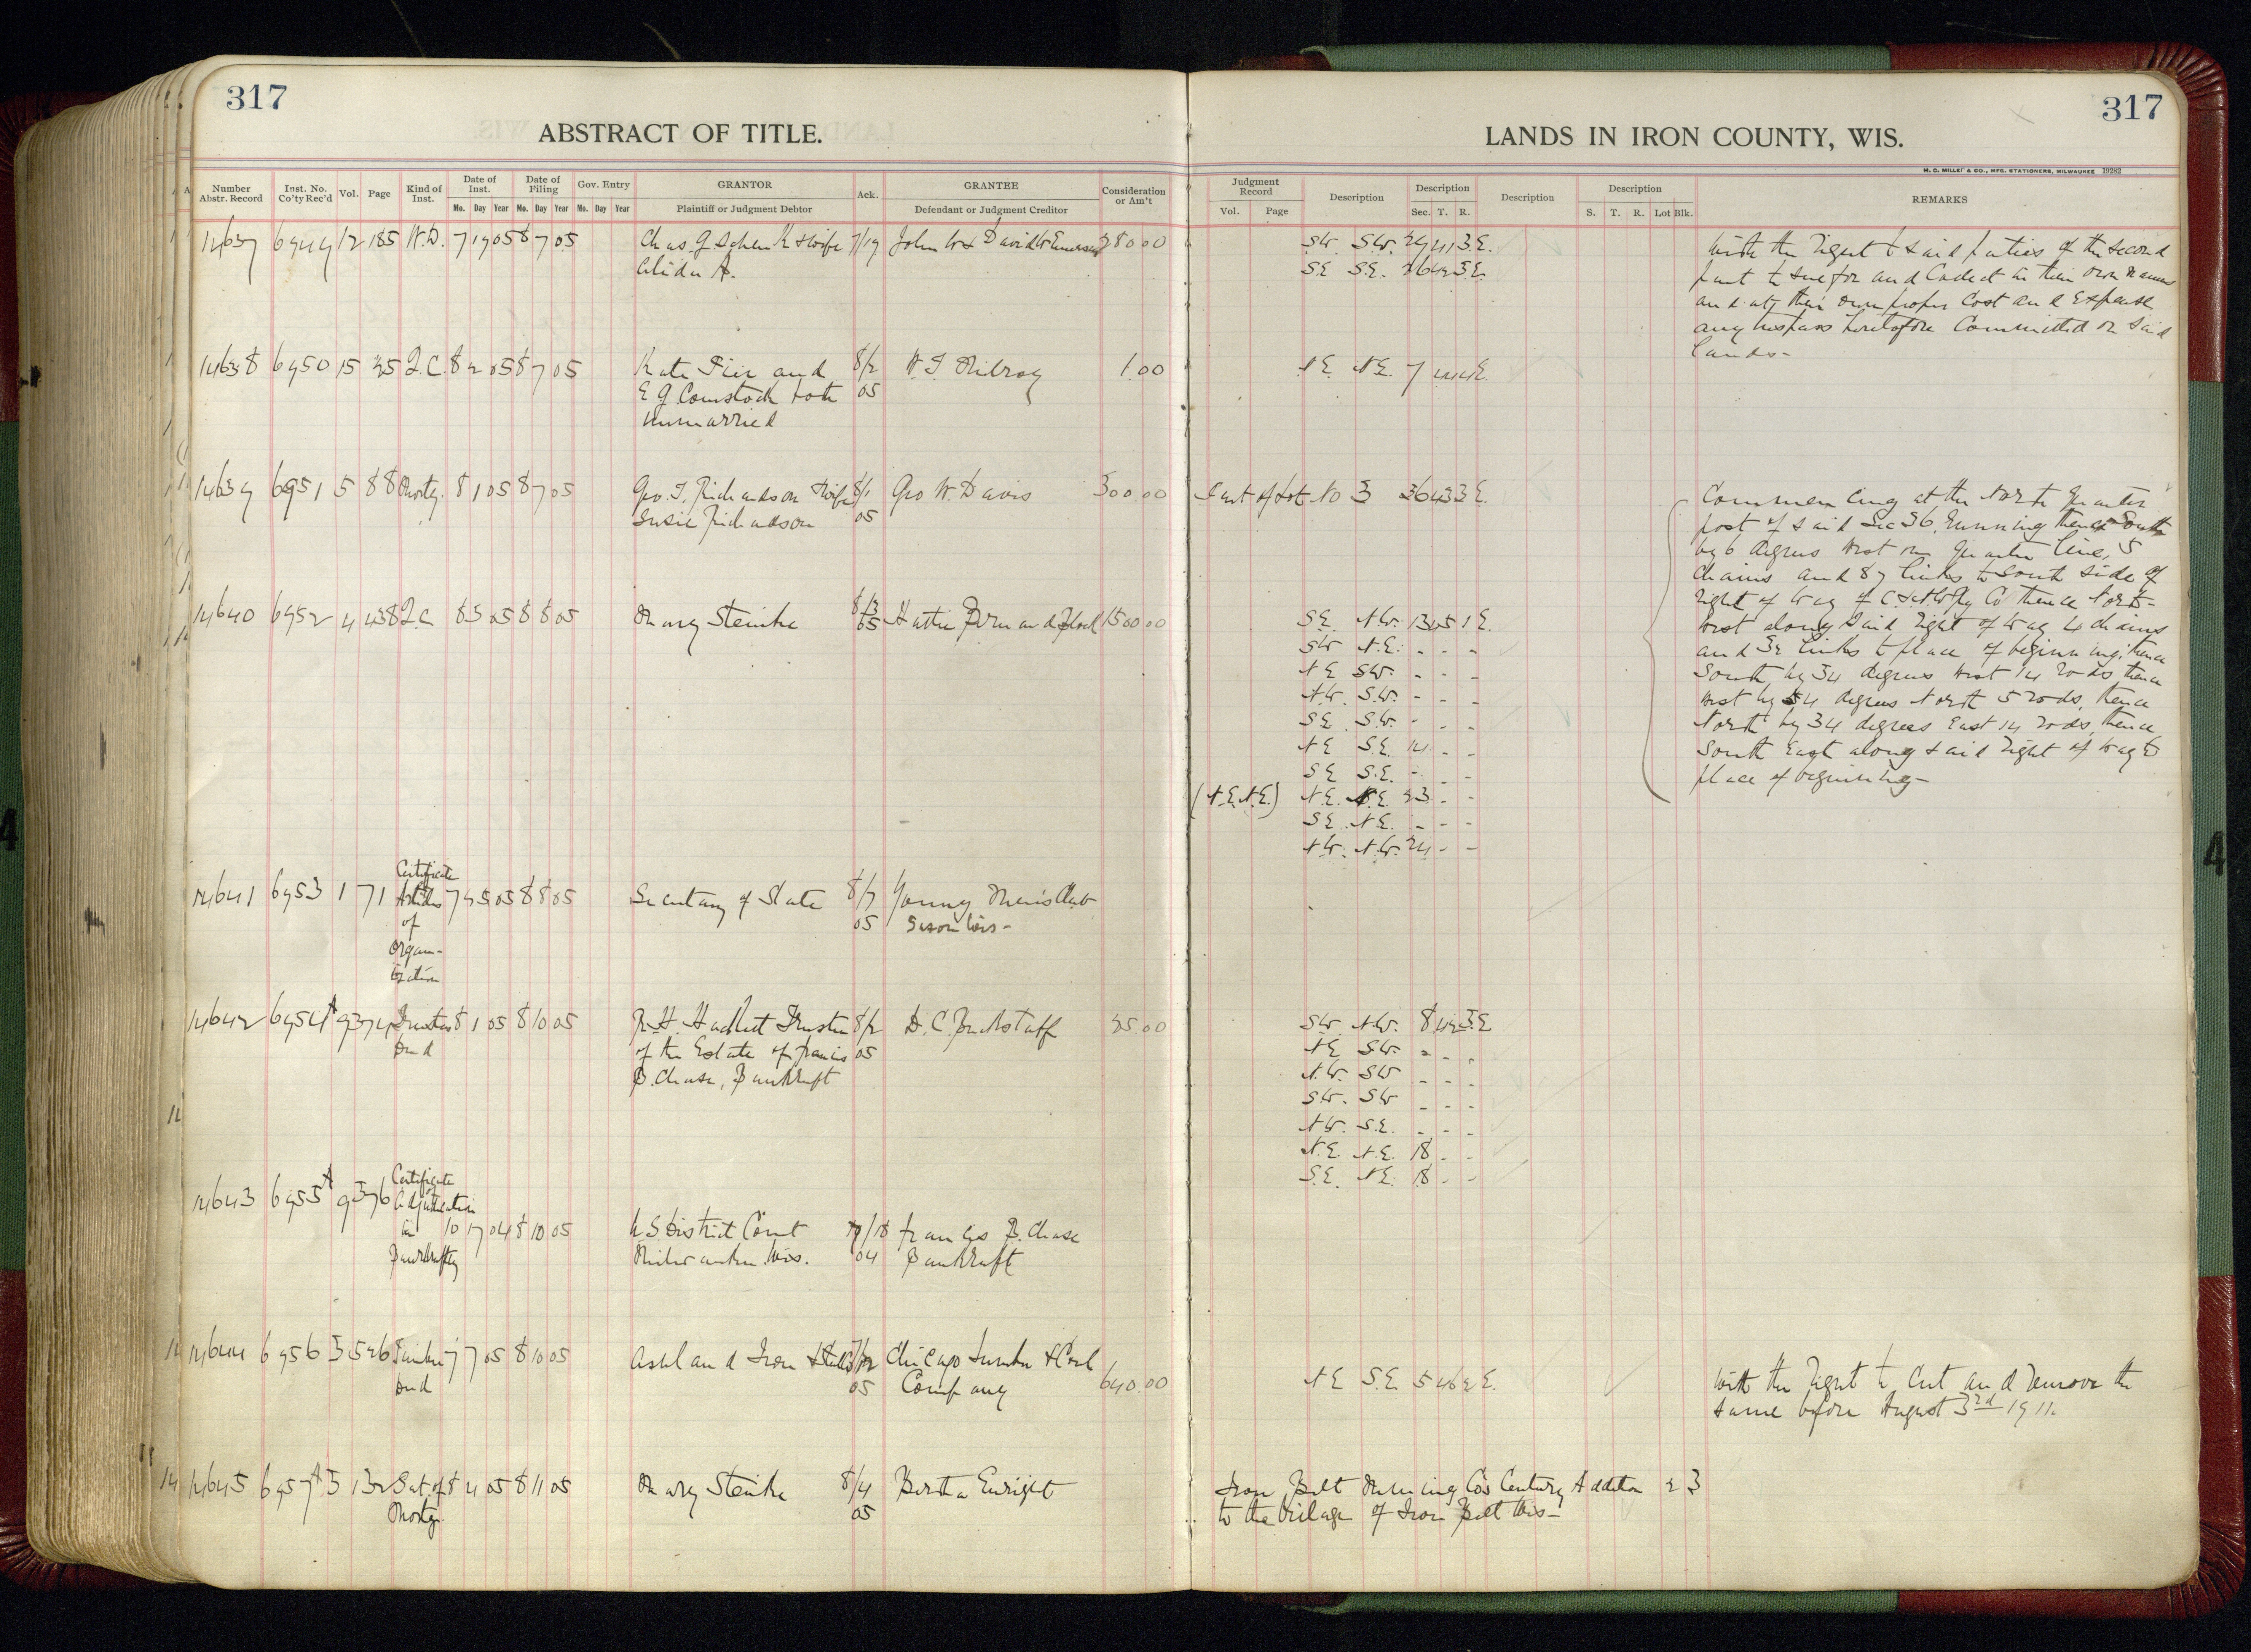 317
ABSTRACT OF TITLE.
Number Abstr. Record
Inst. No. Co'ty Rec'd
Vol.
Page
Kind of Inst.
Date of Inst.
Mo. Day Year
Date of Filing
Mo. Day Year
Gov. Entry
Mo. Day Year
GRANTOR
Plaintiff or Judgment Debtor
Ack.
GRANTEE
Defendant or Judgment Creditor
Consideration or Am't
14637 6949 12 185 W.D. 7 19 05 8 7 05 Chas. G. Schenk & wife 7/19 John W & David W Emerson 280 00
Alida A.
14638 6950 15 Q.C. 8 2 05 8 7 05 Kate Pier and 8/2 W.J. Kilroy 1.00
E G Comstock both 05
unmarried
14639 6951 5 88 Mortg. 8 1 05 8 7 05 Geo. T. Richardson & wife 8/1 Geo W. Davis 300.00
Susie Richardson 05
14640 6952 4 438 Q.C. 8 3 05 8 8 05 Mary Steinke 8/3 05 Hattie 1500 00
14641 6953 1 71 Certificate 7 25 05 8 8 05 Secretary of State 8/7 Young Men's Club
Articles 05 Saxon Wis-
of
Organ-
ization
14642 6954 A 9 374 Trustees 8 1 05 8 10 05 R.H. Hackett Trustee 8/2 D.C. Buckstaff 25.00
Deed of the Estate of Francis 05
B. Chase, Bankrupt
14643 6955 A 9 376 Certificate
Adjudication
in 10 17 04 8 10 05 U S District Court 10/18 Francis B. Chase
Bankruptcy Milwaukee Wis. 04 Bankrupt
14644 6956 3 526 Timber 7 7 05 8 10 05 Ashland Iron & Steel Co Chicago Lumber & Coal
Deed 05 Company 640.00
14645 6957 A 3 132 Sat. of 8 4 05 8 11 05 Mary Steinke 8/4 Bertha Enright
Mortg. 05
317
LANDS IN IRON COUNTY, WIS.
H. C. MILLER & CO., MFG. STATIONERS, MILWAUKEE 19282
Judgment Record
Vol. Page
Description
Description
Sec. T. R.
Description
Description
S. T. R. Lot Blk.
REMARKS
SW. SW. 29 41 3 E.
SE SE. 26 42 3 E.
NE. NE. 7 44 4 E.
Part of Lot No 3 36 43 3 E.
SE. NW. 13 45 1 E.
SW N.E. - - -
NE SW. - - -
N.W. S.W. - - -
SE. S.W. - - -
NE S.E. 14 - -
SE S.E. - - -
(N.E. N.E.) N.E. N.E. 23 - -
SE. NE. - - -
NW. N.W. 24 - -
SW. NW. 8 42 3 E
NE SW. - - -
N.W. SW - - -
SW. SW - - -
NW. S.E. - - -
N.E. N.E. 18 - -
S.E. NE. 18 - -
NE S.E. 5 46 2 E.
Iron Belt Mining Co's Century Addition 2 3
to the Village of Iron Belt Wis-
With the right to said parties of the second
part to sue for and Collect in their own names
and at their own proper Cost and Expense
any trespass heretofore Committed on said
lands-
Commencing at the North Quarter
post of said Sec 36, running thence South
by 6 degrees West on Quarter line, 5
chains and 87 links to South side of
right of way of C. & N.W. Ry Co thence North-
West along said right of way 4 chains
and 32 links to place of beginning; thence
South by 34 degrees West 14 rods, thence
West by 54 degrees North 5 rods, thence
North by 34 degrees East 14 rods, thence
South East along said right of way to
place of beginning-
With the right to Cut and remove the
same before August 3rd 1911.